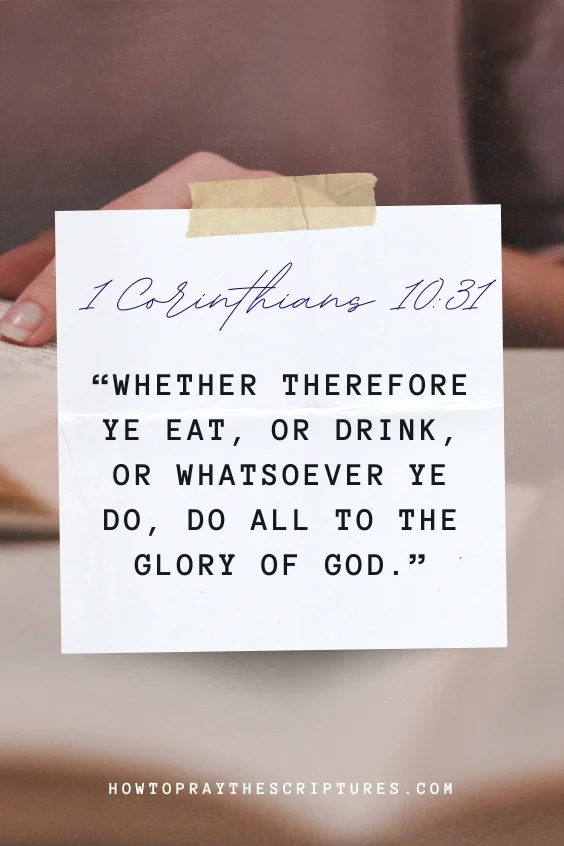 1 Corinthians 10:31
“WHETHER THEREFORE
YE EAT, OR DRINK,
OR WHATSOEVER YE
DO, DO ALL TO THE
GLORY OF GOD.”
HOWTOPRAYTHESCRIPTURES.COM